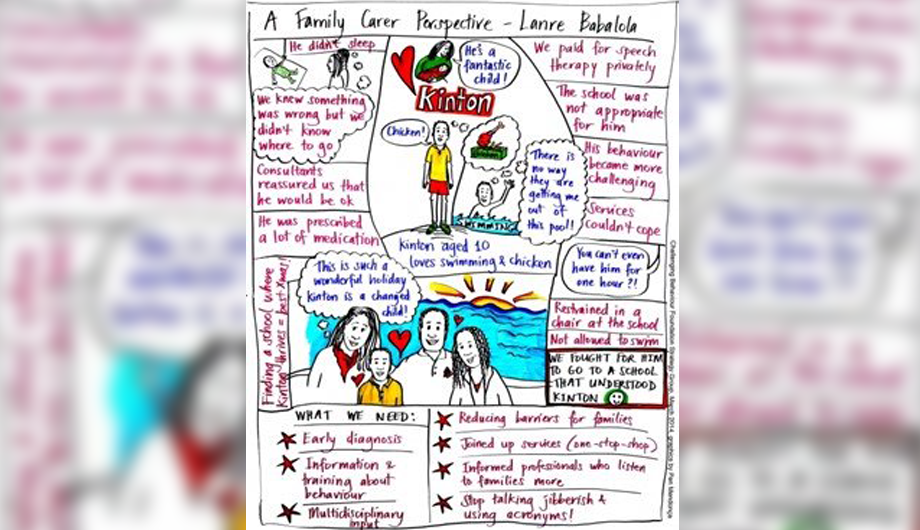 A Family Carer Perspective - Lanre Babalola
He didn't sleep
We knew something
was wrong but we
didn't know
where to go
Consultants
reassured us that
he would be ok
He was prescribed
a lot of medication
He's a
fantastic
child!
Kinton
Chicken!
There is
no way
they are
getting me
out of
this pool!
SWIMMING
Kinton aged 10
loves swimming & chicken
We paid for speech
therapy privately
The school was
not appropriate
for him
His behaviour
became more
challenging
Services
couldn't cope
You can't even
have him for
one hour?!
Restrained in a
chair at the school
Not allowed to swim
WE FOUGHT FOR HIM
TO GO TO A SCHOOL
THAT UNDERSTOOD
KINTON
Finding a school where
Kinton thrives = best Xmas!
This is such a
wonderful holiday
Kinton is a changed
child!
WHAT WE NEED:
Early diagnosis
Information &
training about
behaviour
Multidisciplinary
input
Reducing barriers for families
Joined up services (one-stop-shop)
Informed professionals who listen
to families more
Stop talking jibberish &
using acronyms!
Challenging Behaviour Foundation Strategy Group, March 2014, graphics by Pen Mendonça